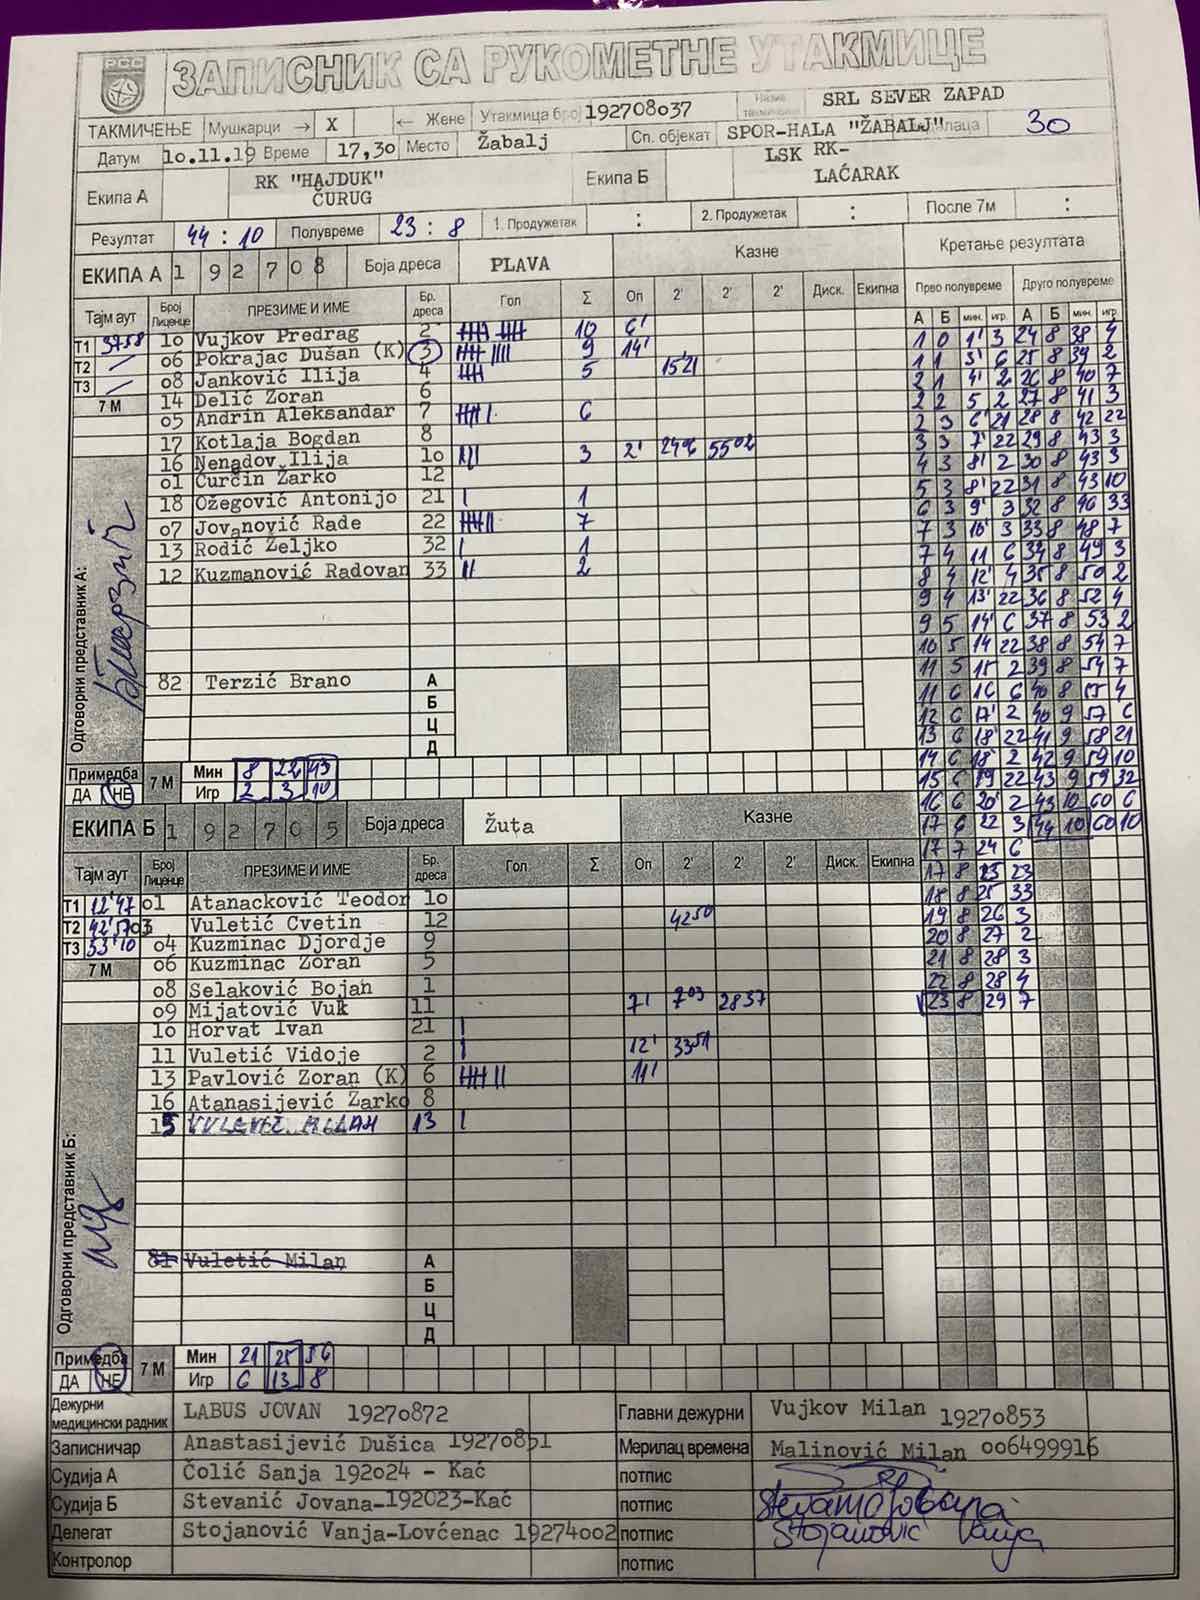 РСС
ЗАПИСНИК СА РУКОМЕТНЕ УТАКМИЦЕ
ТАКМИЧЕЊЕ Мушкарци → X ← Жене Утакмица број 192708037 SRL SEVER ZAPAD
Датум 10.11.19 Време 17,30 Место Žabalj Сп. објекат SPOR-HALA "ŽABALJ" 30
Екипа А RK "HAJDUK" ČURUG Екипа Б LSK RK- LAĆARAK
Резултат 44 : 10 Полувреме 23 : 8 1. Продужетак : 2. Продужетак : После 7м :
ЕКИПА А 1 9 2 7 0 8 Боја дреса PLAVA Казне Кретање резултата
Тајм аут Број Лиценце ПРЕЗИМЕ И ИМЕ Бр. дреса Гол Σ Оп 2' 2' 2' Диск. Екипна Прво полувреме Друго полувреме
А Б мин. игр. А Б мин. игр
T1 3758 10 Vujkov Predrag 2 10 6' 1 0 1' 3 24 8 38 4
T2 06 Pokrajac Dušan (K) 3 9 14' 1 1 3' 6 25 8 39 2
T3 08 Janković Ilija 4 5 1521 2 1 4' 2 26 8 40 7
7 М 14 Delić Zoran 6 2 2 5 2 27 8 41 3
05 Andrin Aleksandar 7 6 2 3 6' 21 28 8 42 22
17 Kotlaja Bogdan 8 3 3 7' 22 29 8 43 3
16 Nenadov Ilija 10 3 2' 2496 5502 4 3 8' 2 30 8 43 3
01 Ćurčin Žarko 12 5 3 8' 22 31 8 43 10
18 Ožegović Antonijo 21 1 6 3 9' 3 32 8 46 33
07 Jovanović Rade 22 7 7 3 10' 3 33 8 48 7
13 Rodić Željko 32 1 7 4 11 6 34 8 49 3
12 Kuzmanović Radovan 33 2 8 4 12' 4 35 8 50 2
9 4 13' 22 36 8 52 4
9 5 14' 6 37 8 53 2
10 5 14 22 38 8 54 7
11 5 15 2 39 8 54 7
82 Terzić Brano А 11 6 16 6 40 8 55 4
Б 12 6 17' 2 40 9 57 6
Ц 13 6 18' 22 41 9 58 21
Д 14 6 18' 2 42 9 59 10
Одговорни представник А:
Примедба 7 М Мин 8 22 43 15 6 19 22 43 9 59 32
ДА НЕ Игр 2 3 10 16 6 20' 2 43 10 60 6
ЕКИПА Б 1 9 2 7 0 5 Боја дреса Žuta Казне 17 6 22 3 44 10 60 10
17 7 24 6
Тајм аут Број Лиценце ПРЕЗИМЕ И ИМЕ Бр. дреса Гол Σ Оп 2' 2' 2' Диск. Екипна 17 8 25 23
T1 12'47 01 Atanacković Teodor 10 18 8 25 33
T2 42'57 03 Vuletić Cvetin 12 4250 19 8 26 3
T3 53'10 04 Kuzminac Djordje 9 20 8 27 2
7 М 06 Kuzminac Zoran 5 21 8 28 3
08 Selaković Bojan 1 22 8 28 4
09 Mijatović Vuk 11 7' 703 2837 23 8 29 7
10 Horvat Ivan 21
11 Vuletić Vidoje 2 12' 3351
13 Pavlović Zoran (K) 6 11'
16 Atanasijević Žarko 8
15 13
Одговорни представник Б:
81 Vuletić Milan А
Б
Ц
Д
Примедба 7 М Мин 21 25 56
ДА НЕ Игр 6 13 8
Дежурни медицински радник LABUS JOVAN 19270872 Главни дежурни Vujkov Milan 19270853
Записничар Anastasijević Dušica 19270851 Мерилац времена Malinović Milan 006499916
Судија А Čolić Sanja 192024 - Kać потпис
Судија Б Stevanić Jovana-192023-Kać потпис
Делегат Stojanović Vanja-Lovćenac 19274002 потпис Stojanović Vanja
Контролор потпис